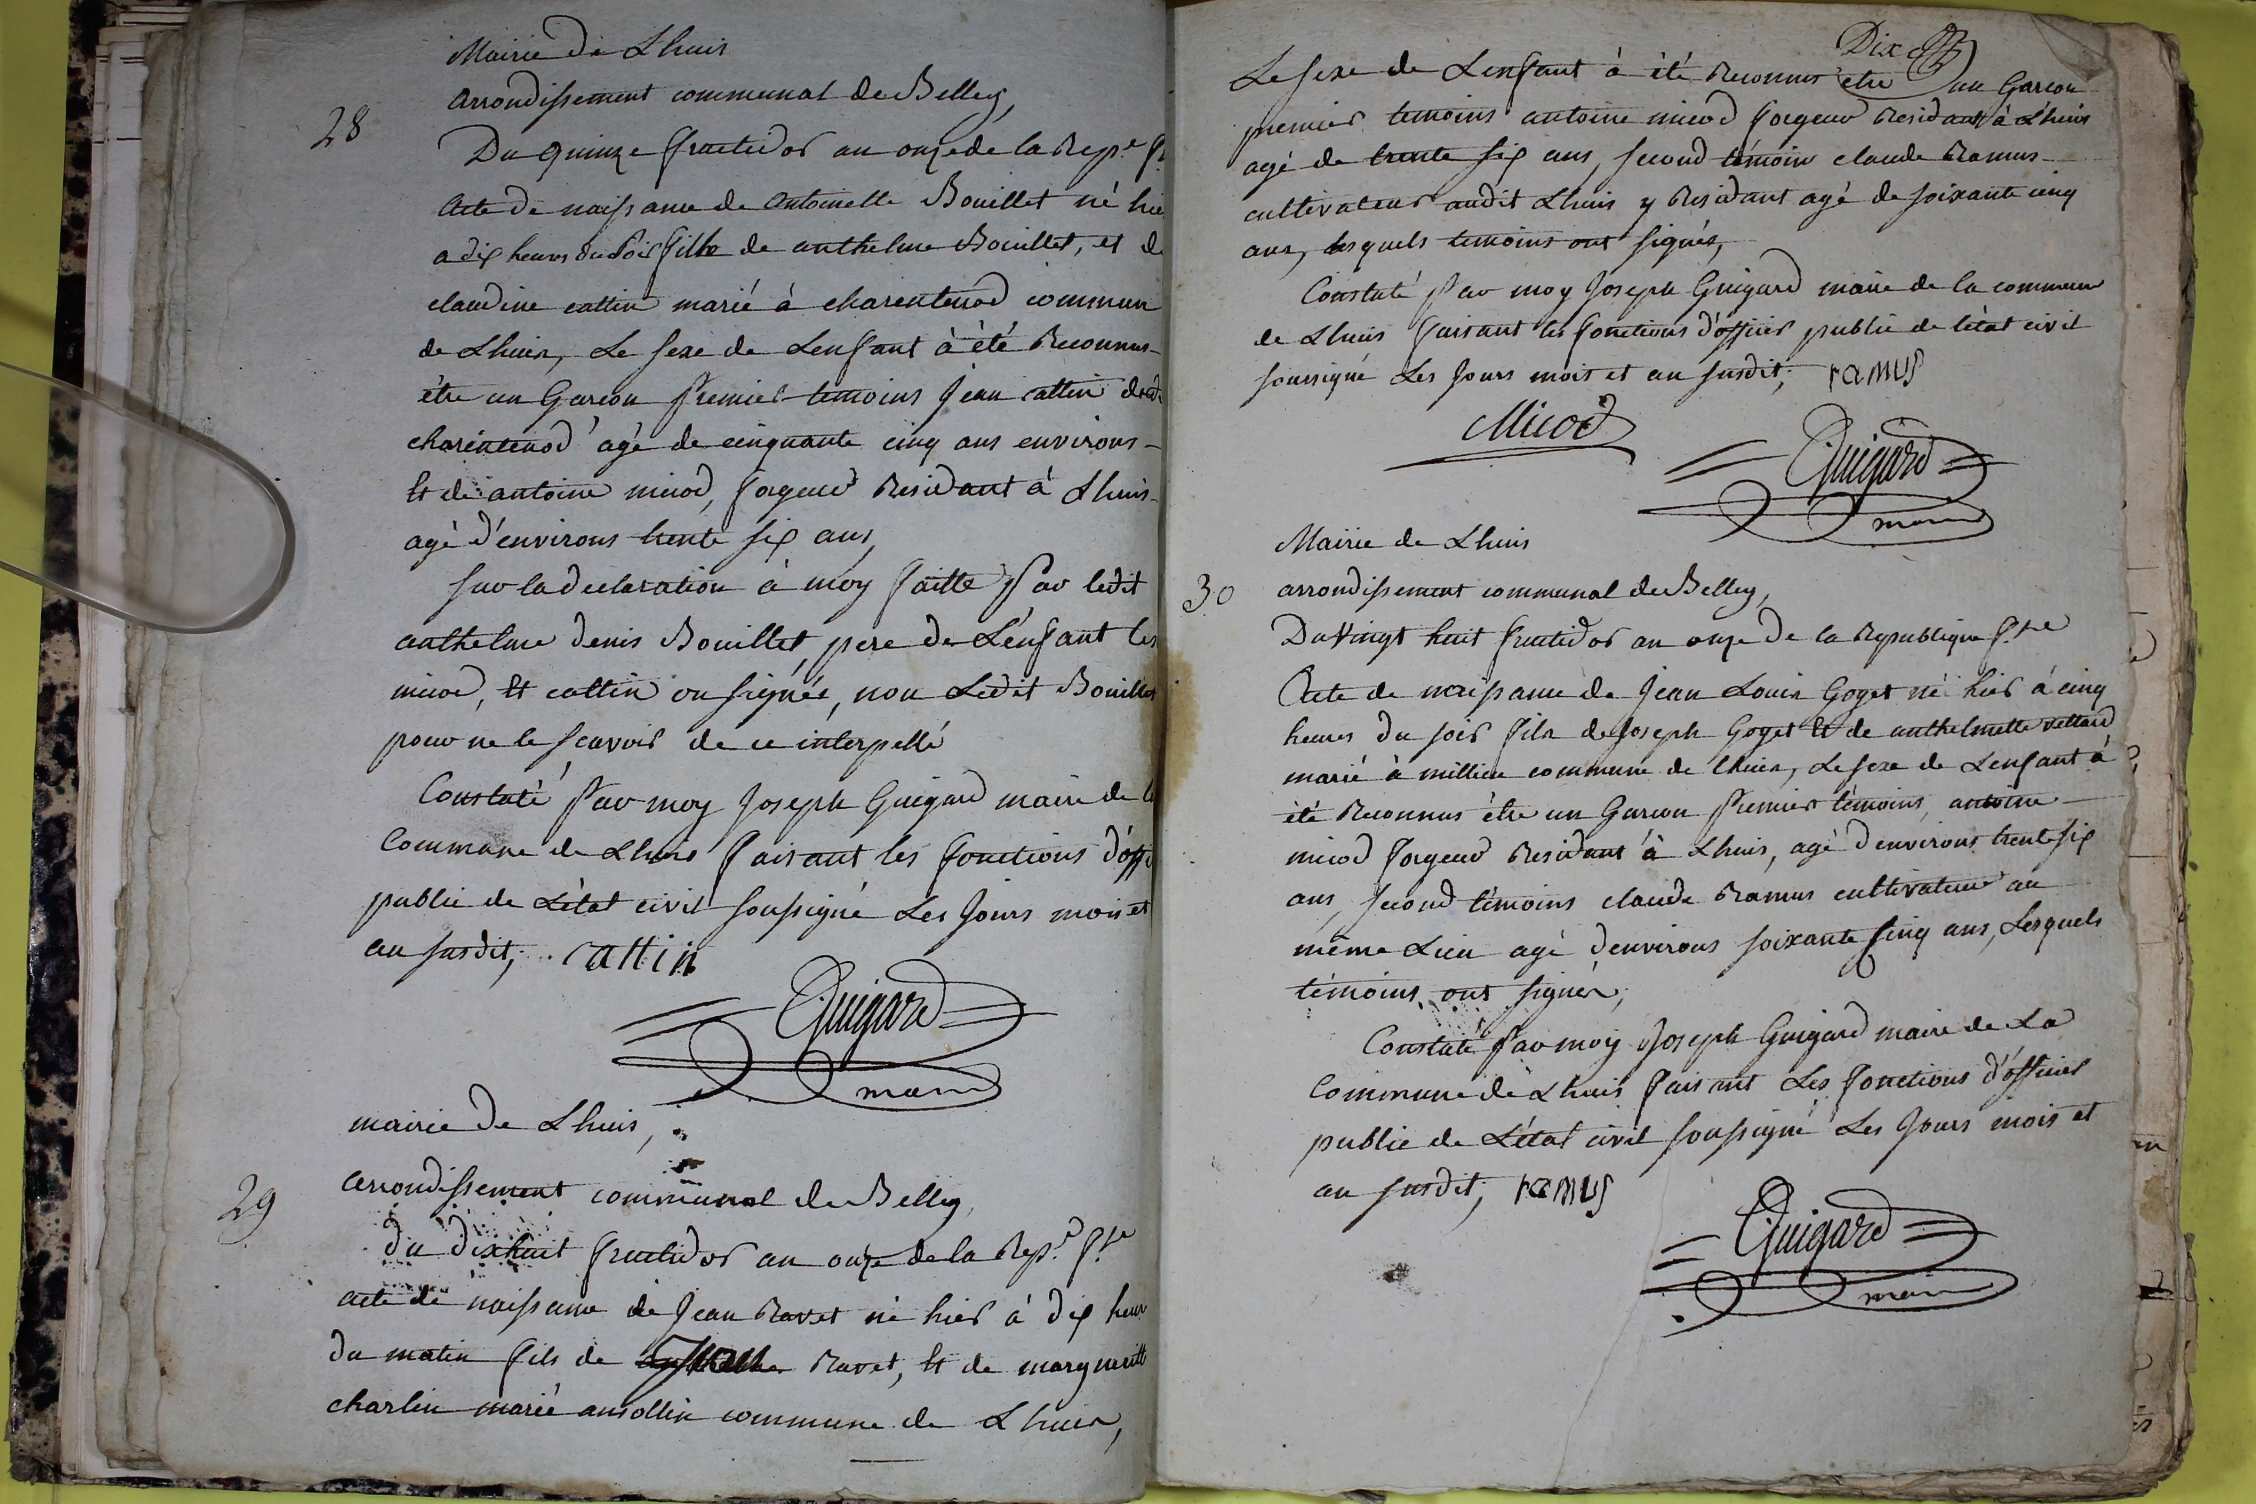 Mairie de Lhuis
arrondissement communal de Belley,
28
Du quinze fructidor an onze de la Rep.e
Acte de naissance de antoinette Bouillet né hie
a dix heures du soir fille de anthelme Bouillet, et d
claudine cattin marié à charentenod commun
de Lhuis, Le sexe de Lenfant à été Reconnus
être un Garcon Premier temoins jean cattin
charentenod agé de cinquante cinq ans environs
Et de antoine micod, forgeur Residant à Lhuis
agé d'environs trente six ans,
sur la declaration à moy faitte Par ledit
anthelme denis Bouillet, pere de L'enfant les
micod, Et cattin on signés, non Ledit Bouillet
pour ne le scavoir de ce interpellé
Constaté Par moy Joseph Guigard maire de l
Commune de Lhuis faisant les fonctions d'offi
public de L'état civil soussigné Les Jours mois et
an susdit; cattin
Guigard
maire
mairie de Lhuis,
29
arrondissement communal de Belley,
du dixhuit fructidor an onze de la Rep.e f.se
acte de naissance de Jean Ravet né hier à dix heur
du matin fils de Ravet, Et de margueritte
charlin marié ansollin commune de Lhuis,
Dix
Le sexe de Lenfant à été Reconnus etre un Garcon
premier temoins antoine micod forgeur Residant à Lhuis
agé de trente six ans, second témoin claude Ramus
cultivateur audit Lhuis y Residant agé de soixante cinq
ans, lesquels temoins ont signés,
Constaté Par moy Joseph Guigard maire de la commune
de Lhuis faisant les fonctions d'officier public de l'état civil
soussigné Les Jours mois et an susdit; ramus
Micod
Guigard
maire
Mairie de Lhuis
30
arrondissement communal de Belley,
Du Vingt huit fructidor an onze de la Republique f.se
Acte de naissance de Jean Louis Goyet né hier à cinq
heures du soir fils de Joseph Goyet Et de anthelmette vettard
marié à millieu commune de Lhuis, Le sexe de Lenfant à
été Reconnus être un Garcon Premier témoins, antoine
micod forgeur Residant à Lhuis, agé d'environs trente six
ans, second témoins claude Ramus cultivateur au
même Lieu agé d'environs soixante cinq ans, Lesquels
témoins ont signés;
Constaté Par moy Joseph Guigard maire de La
Commune de Lhuis faisant Les fonctions d'officier
public de L'état civil soussigné Les Jours mois et
an susdit; ramus
Guigard
maire